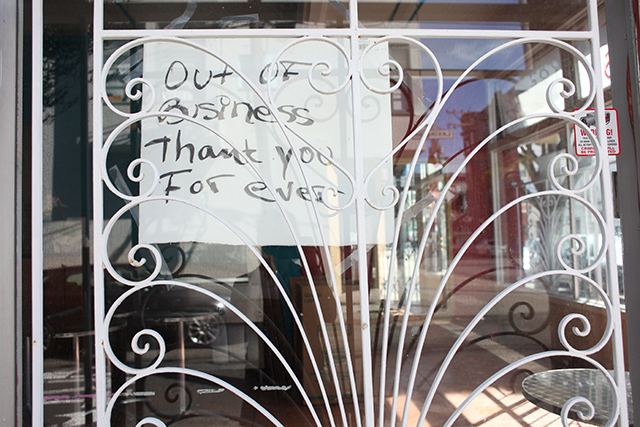 Out of
Business
Thank you
For ever
WARNING